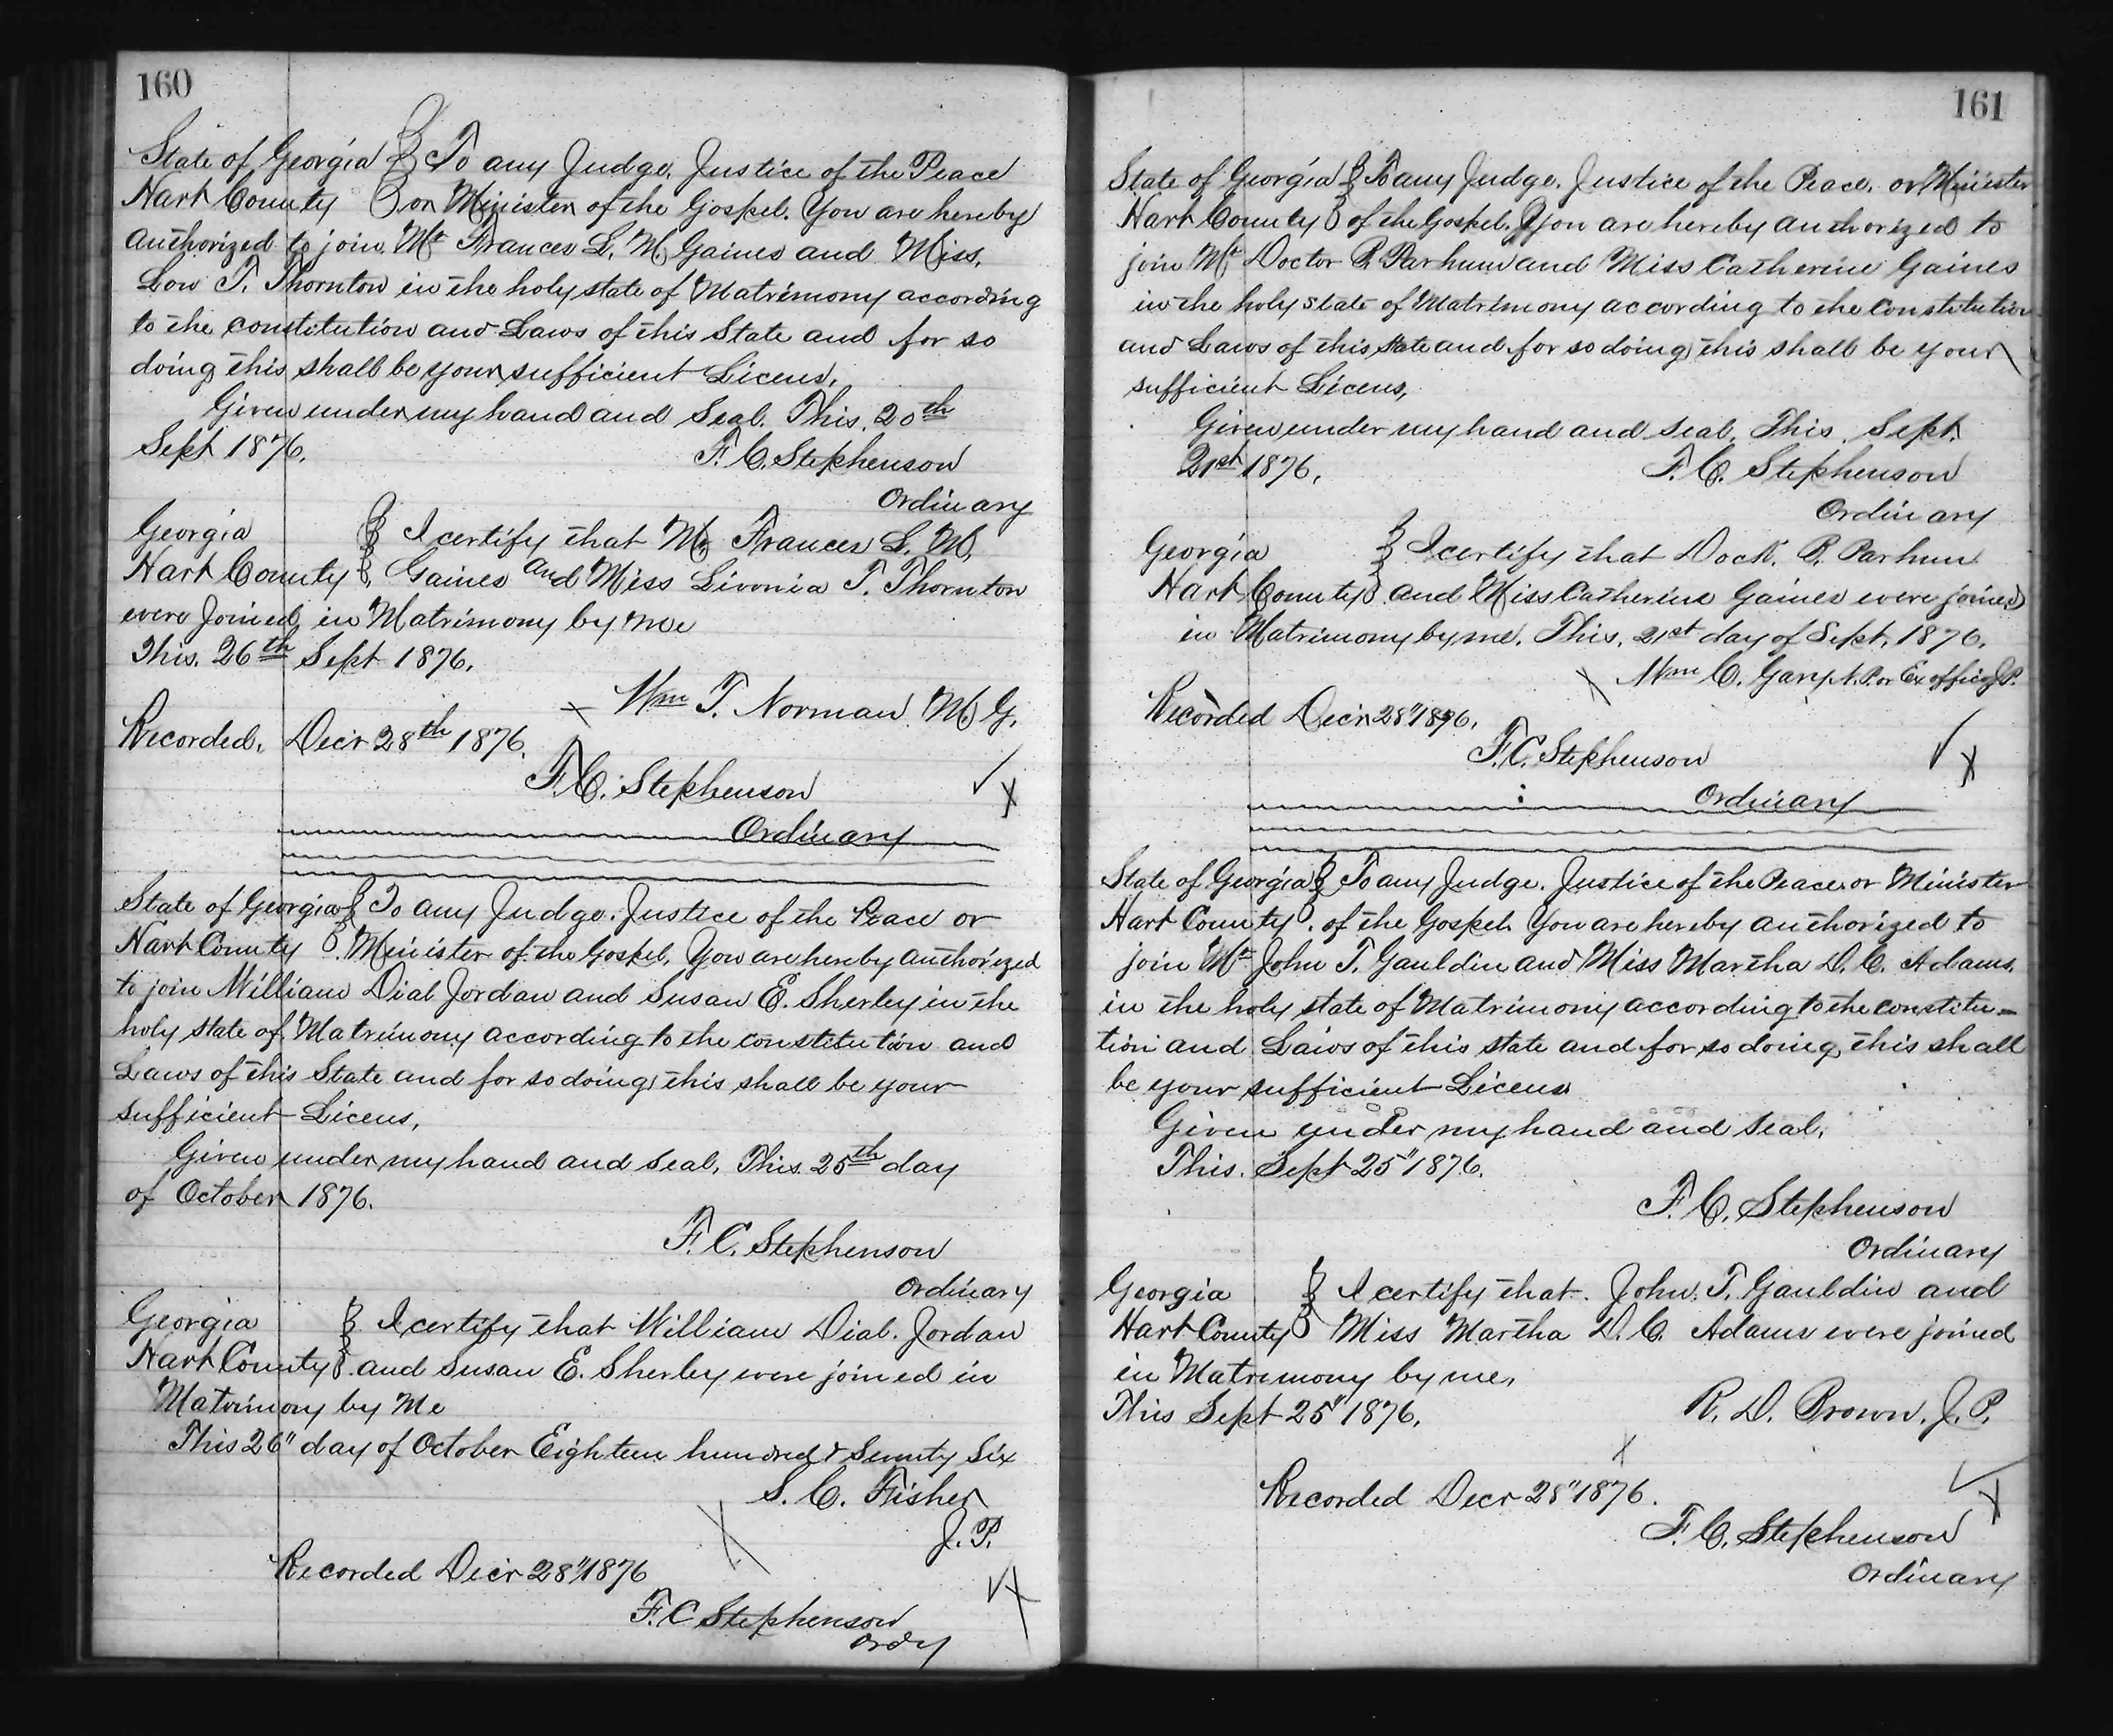 160
State of Georgia } To any Judge, Justice of the Peace
Hart County } or Minister of the Gospel. You are hereby
authorized to join Mr Frances L. M. Gaines and Miss,
Lou T. Thornton in the holy state of Matrimony according
to the constitution and Laws of this State and for so
doing this shall be your sufficient Licens,
Given under my hand and Seal. This, 20th
Sept 1876.
F. C. Stephenson
Ordinary
Georgia } I certify that Mr Frances L. M,
Hart County } Gaines and Miss Livonia T. Thornton
were Joined in Matrimony by me
This. 26th Sept 1876.
X Wm T. Norman. M G.
Recorded, Decr 28th 1876.
F. C. Stephenson
Ordinary
State of Georgia } To any Judge. Justice of the Peace or
Hart County } Minister of the Gospel, You are hereby authorized
to join William Dial Jordan and Susan E. Sherley in the
holy state of Matrimony according to the constitution and
Laws of this State and for so doing this shall be your
sufficient Licens,
Given under my hand and seal, This 25th day
of October 1876.
F. C. Stephenson
Ordinary
Georgia } I certify that William Dial. Jordan
Hart County } and Susan E. Sherley were joined in
Matrimony by Me
This 26" day of October Eighteen hundred & Seventy Six
S. C. Fisher
J. P.
Recorded Decr 28" 1876
F. C Stephenson
Ordy
161
State of Georgia } To any Judge. Justice of the Peace, or Minister
Hart County } of the Gospel. You are hereby authorized to
join Mr Doctor P. Parhum and Miss Catherine Gaines
in the holy state of Matrimony according to the constitution
and Laws of this State and for so doing this shall be your
sufficient Licens,
Given under my hand and seal, This, Sept.
21st 1876,
F. C. Stephenson
Ordinary
Georgia } I certify that Dock. P. Parhum
Hart County } and Miss Catherine Gaines were joined
in Matrimony by me. This, 21st day of Sept, 1876.
X Wm C. Gary N. P. or Ex officio J. P.
Recorded Decr 28" 1876.
F. C. Stephenson
Ordinary
State of Georgia } To any Judge. Justice of the Peace or Minister
Hart County } of the Gospel. You are hereby authorized to
join Mr John T. Gauldin and Miss Martha D. C. Adams.
in the holy state of Matrimony according to the constitu-
tion and Laws of this state and for so doing, this shall
be your sufficient Licens
Given under my hand and seal.
This. Sept 25" 1876.
F. C. Stephenson
Ordinary
Georgia } I certify that. John. T. Gauldin and
Hart County } Miss Martha D. C. Adams were joined
in Matrimony by me,
This Sept 25" 1876.
R. D. Brown. J. P.
Recorded Decr 28" 1876.
F. C. Stephenson
Ordinary